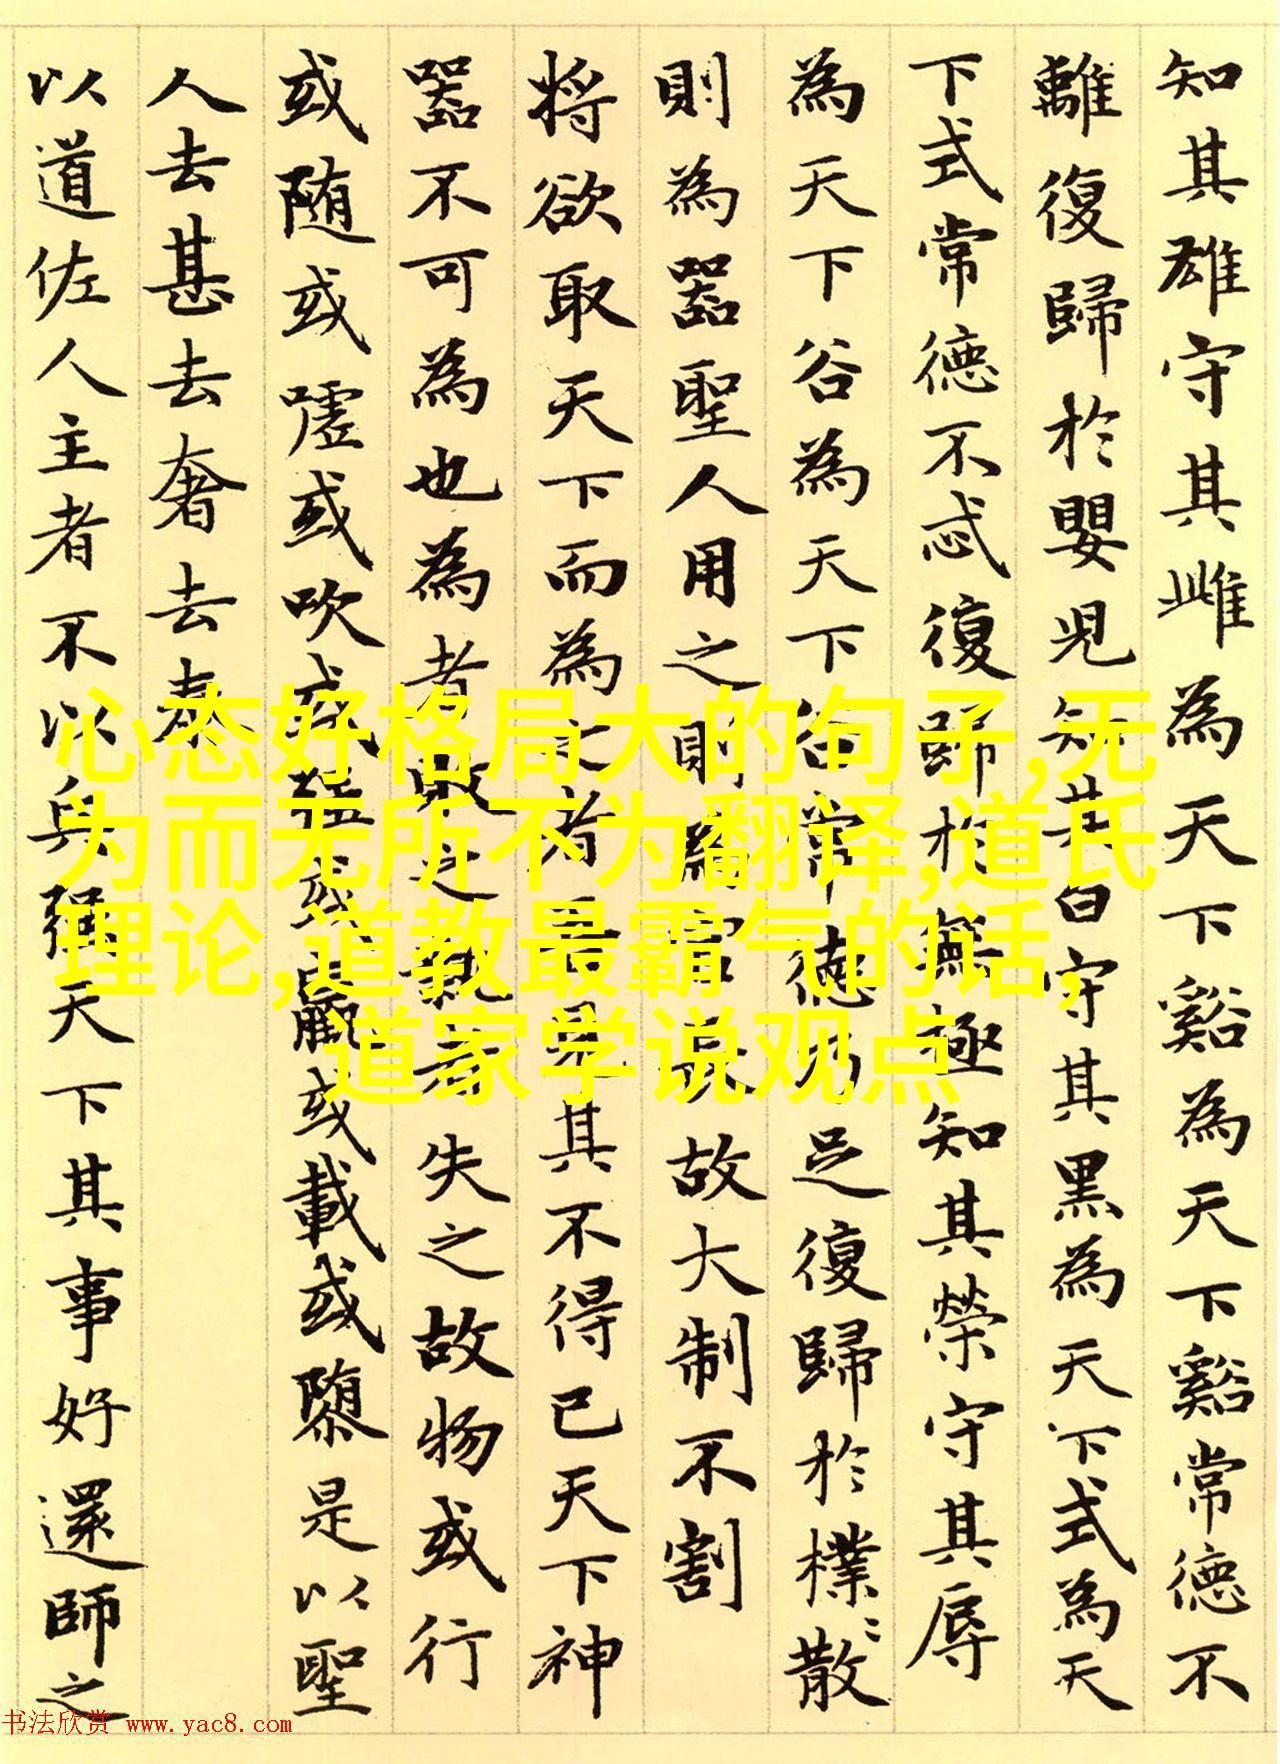 知其雄守其雌為天下谿為天下谿常德不
離復歸於嬰兒知其白守其黑為天下式為天
下式常德不忒復歸於無極知其榮守其辱
為天下谷為天下谷常德乃足復歸於樸〻散
則為器聖人用之則為官長故大制不割
将欲取天下而為之者吾見其不得已天下神
器不可為也為者敗之執者失之故物或行
或随或嘘或吹或强或羸或載或隳是以聖
人去甚去奢去泰
以道佐人主者不以兵强天下其事好還師之
心态好格局大的句子,无
为而无所不为翻译,道氏
理论,道教最霸气的话,
道家学说观点
书法欣赏 www.yac8.com